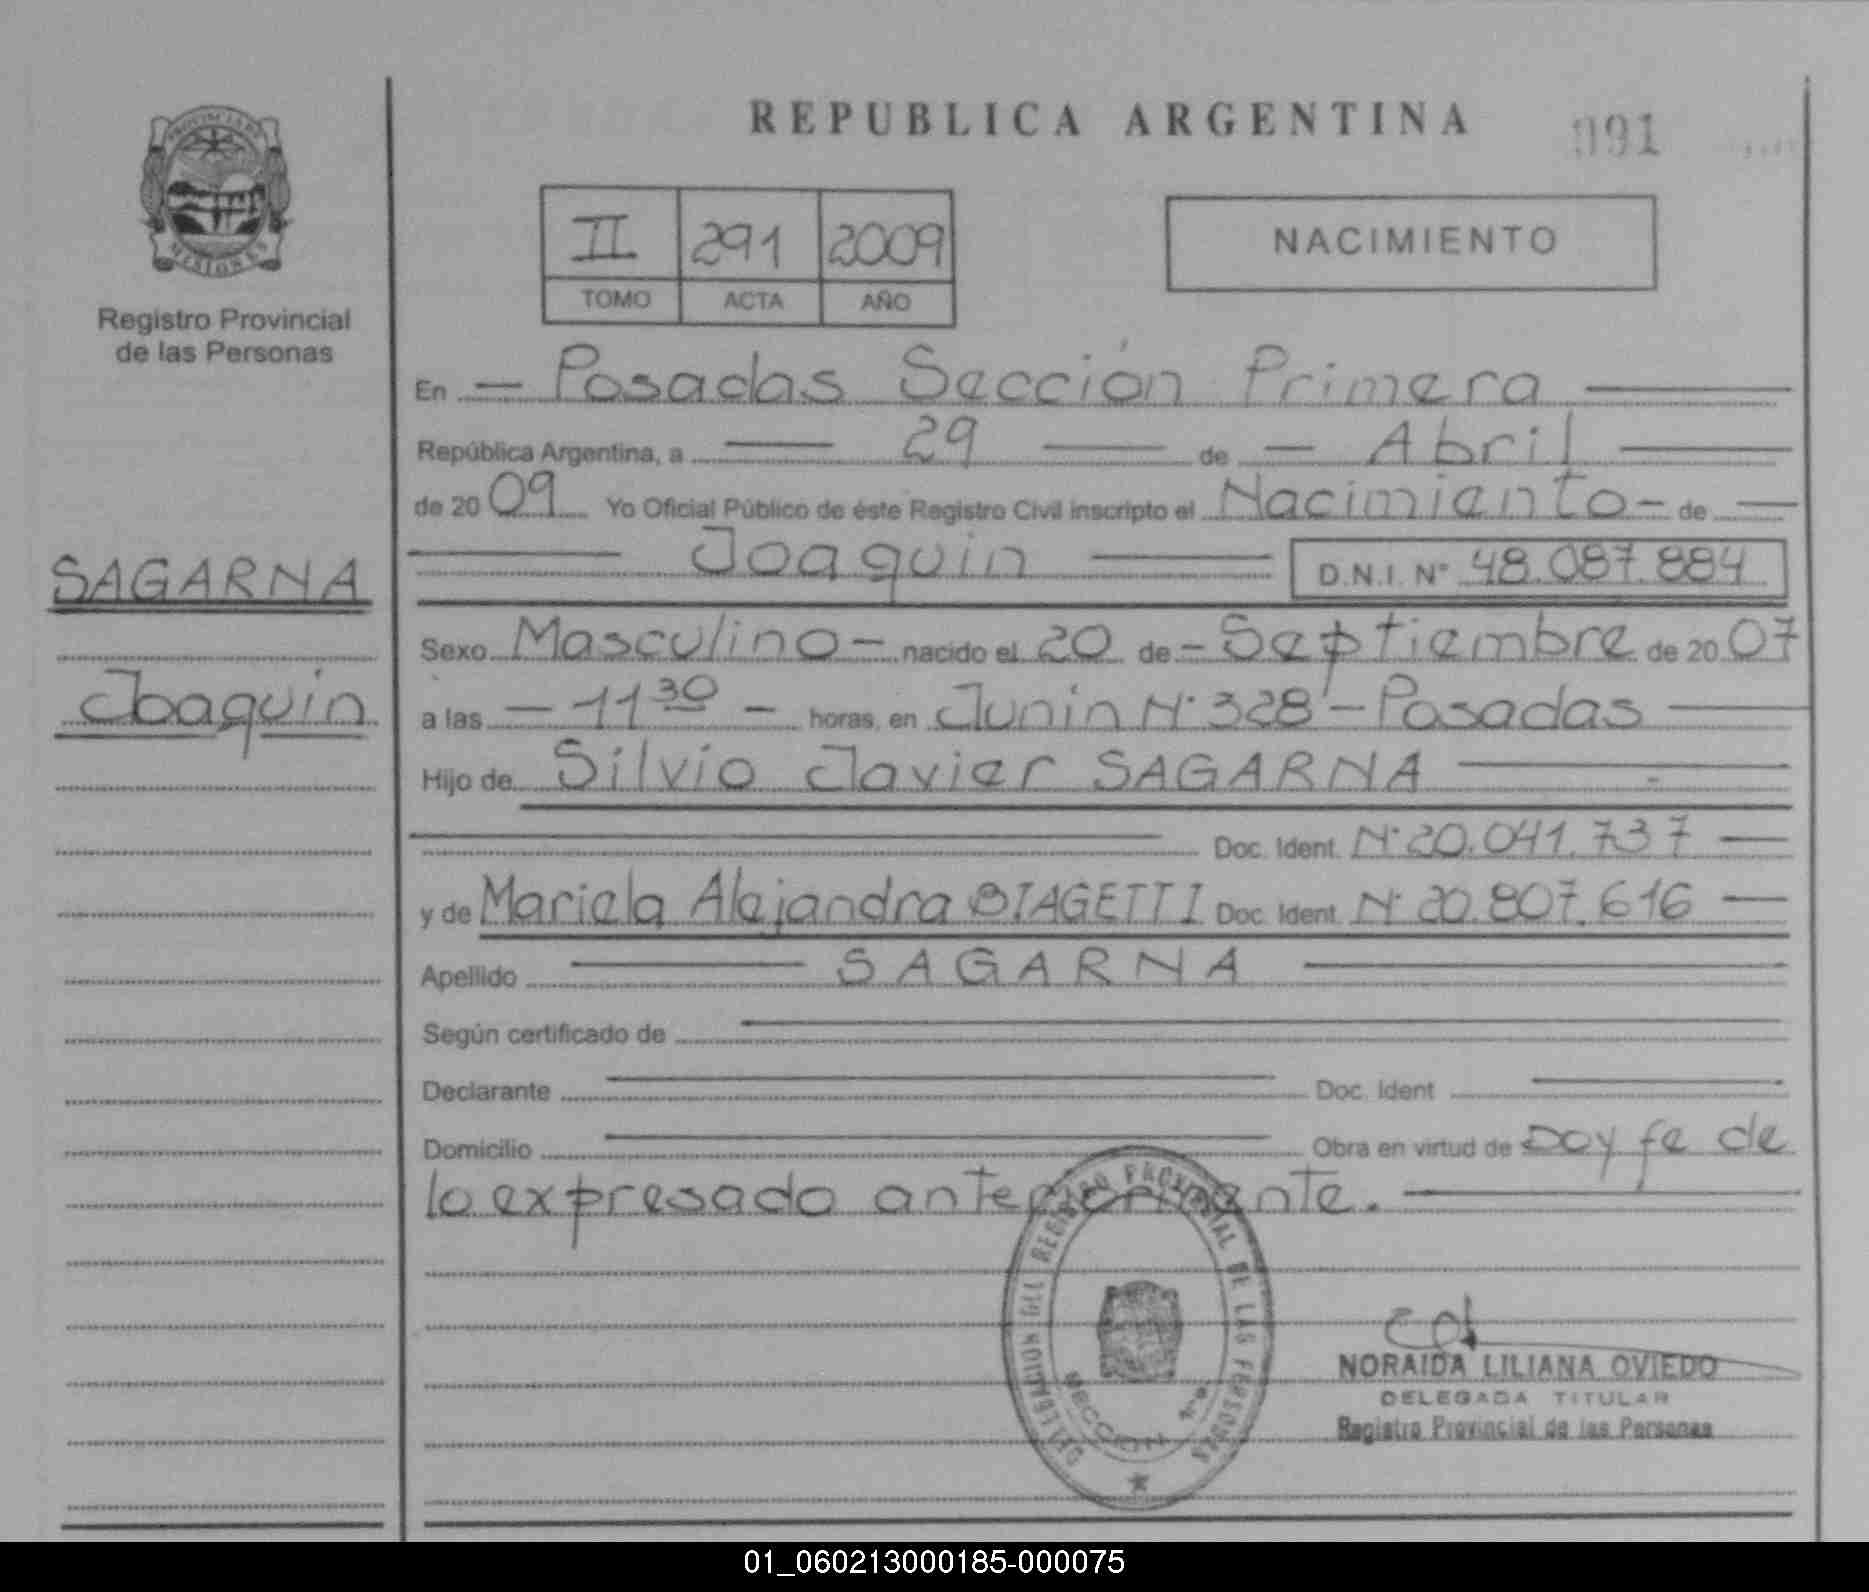 REPUBLICA ARGENTINA
091
PROVINCIA DE MISIONES
Registro Provincial
de las Personas
II 291 2009
TOMO ACTA AÑO
NACIMIENTO
En Posadas Sección Primera
República Argentina, a 29 de Abril
de 2009 Yo Oficial Público de éste Registro Civil inscripto el Nacimiento de
Joaquin D.N.I. N° 48.087.884
SAGARNA
Joaquin
Sexo Masculino nacido el 20 de Septiembre de 2007
a las 11 30 horas, en Junin N° 328 - Posadas
Hijo de Silvio Javier SAGARNA
Doc. Ident. N° 20.041.737
y de Mariela Alejandra BIAGETTI Doc. Ident. N° 20.807.616
Apellido SAGARNA
Según certificado de
Declarante Doc. Ident
Domicilio Obra en virtud de Doy fe de
lo expresado anteriormente.
DELEGACION DEL REGISTRO PROVINCIAL DE LAS PERSONAS
SECCION 1ra.
NORAIDA LILIANA OVIEDO
DELEGADA TITULAR
Registro Provincial de las Personas
01_060213000185-000075